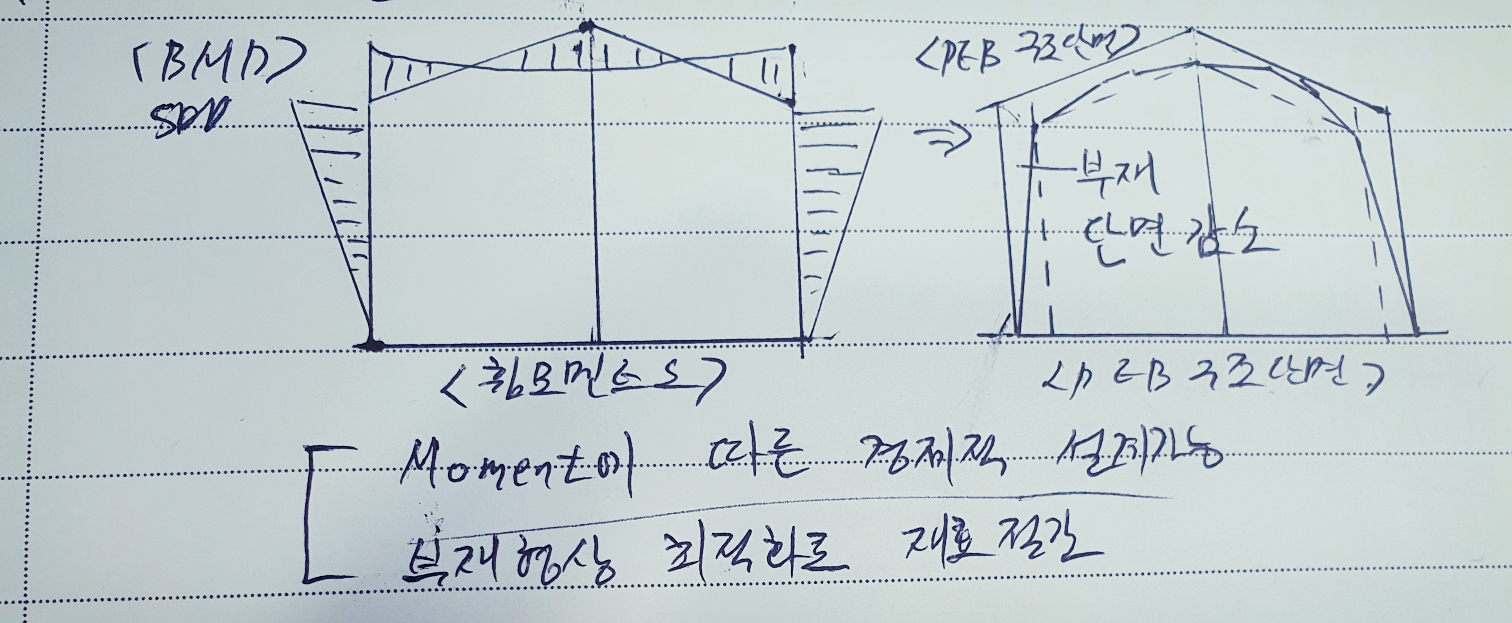 <BMD>
<PEB 구조단면>
부재
단면 감소
<휨모멘트>
<PEB 구조단면>
Moment에 따른 경제적 설계가능
부재형상 최적화로 재료절감